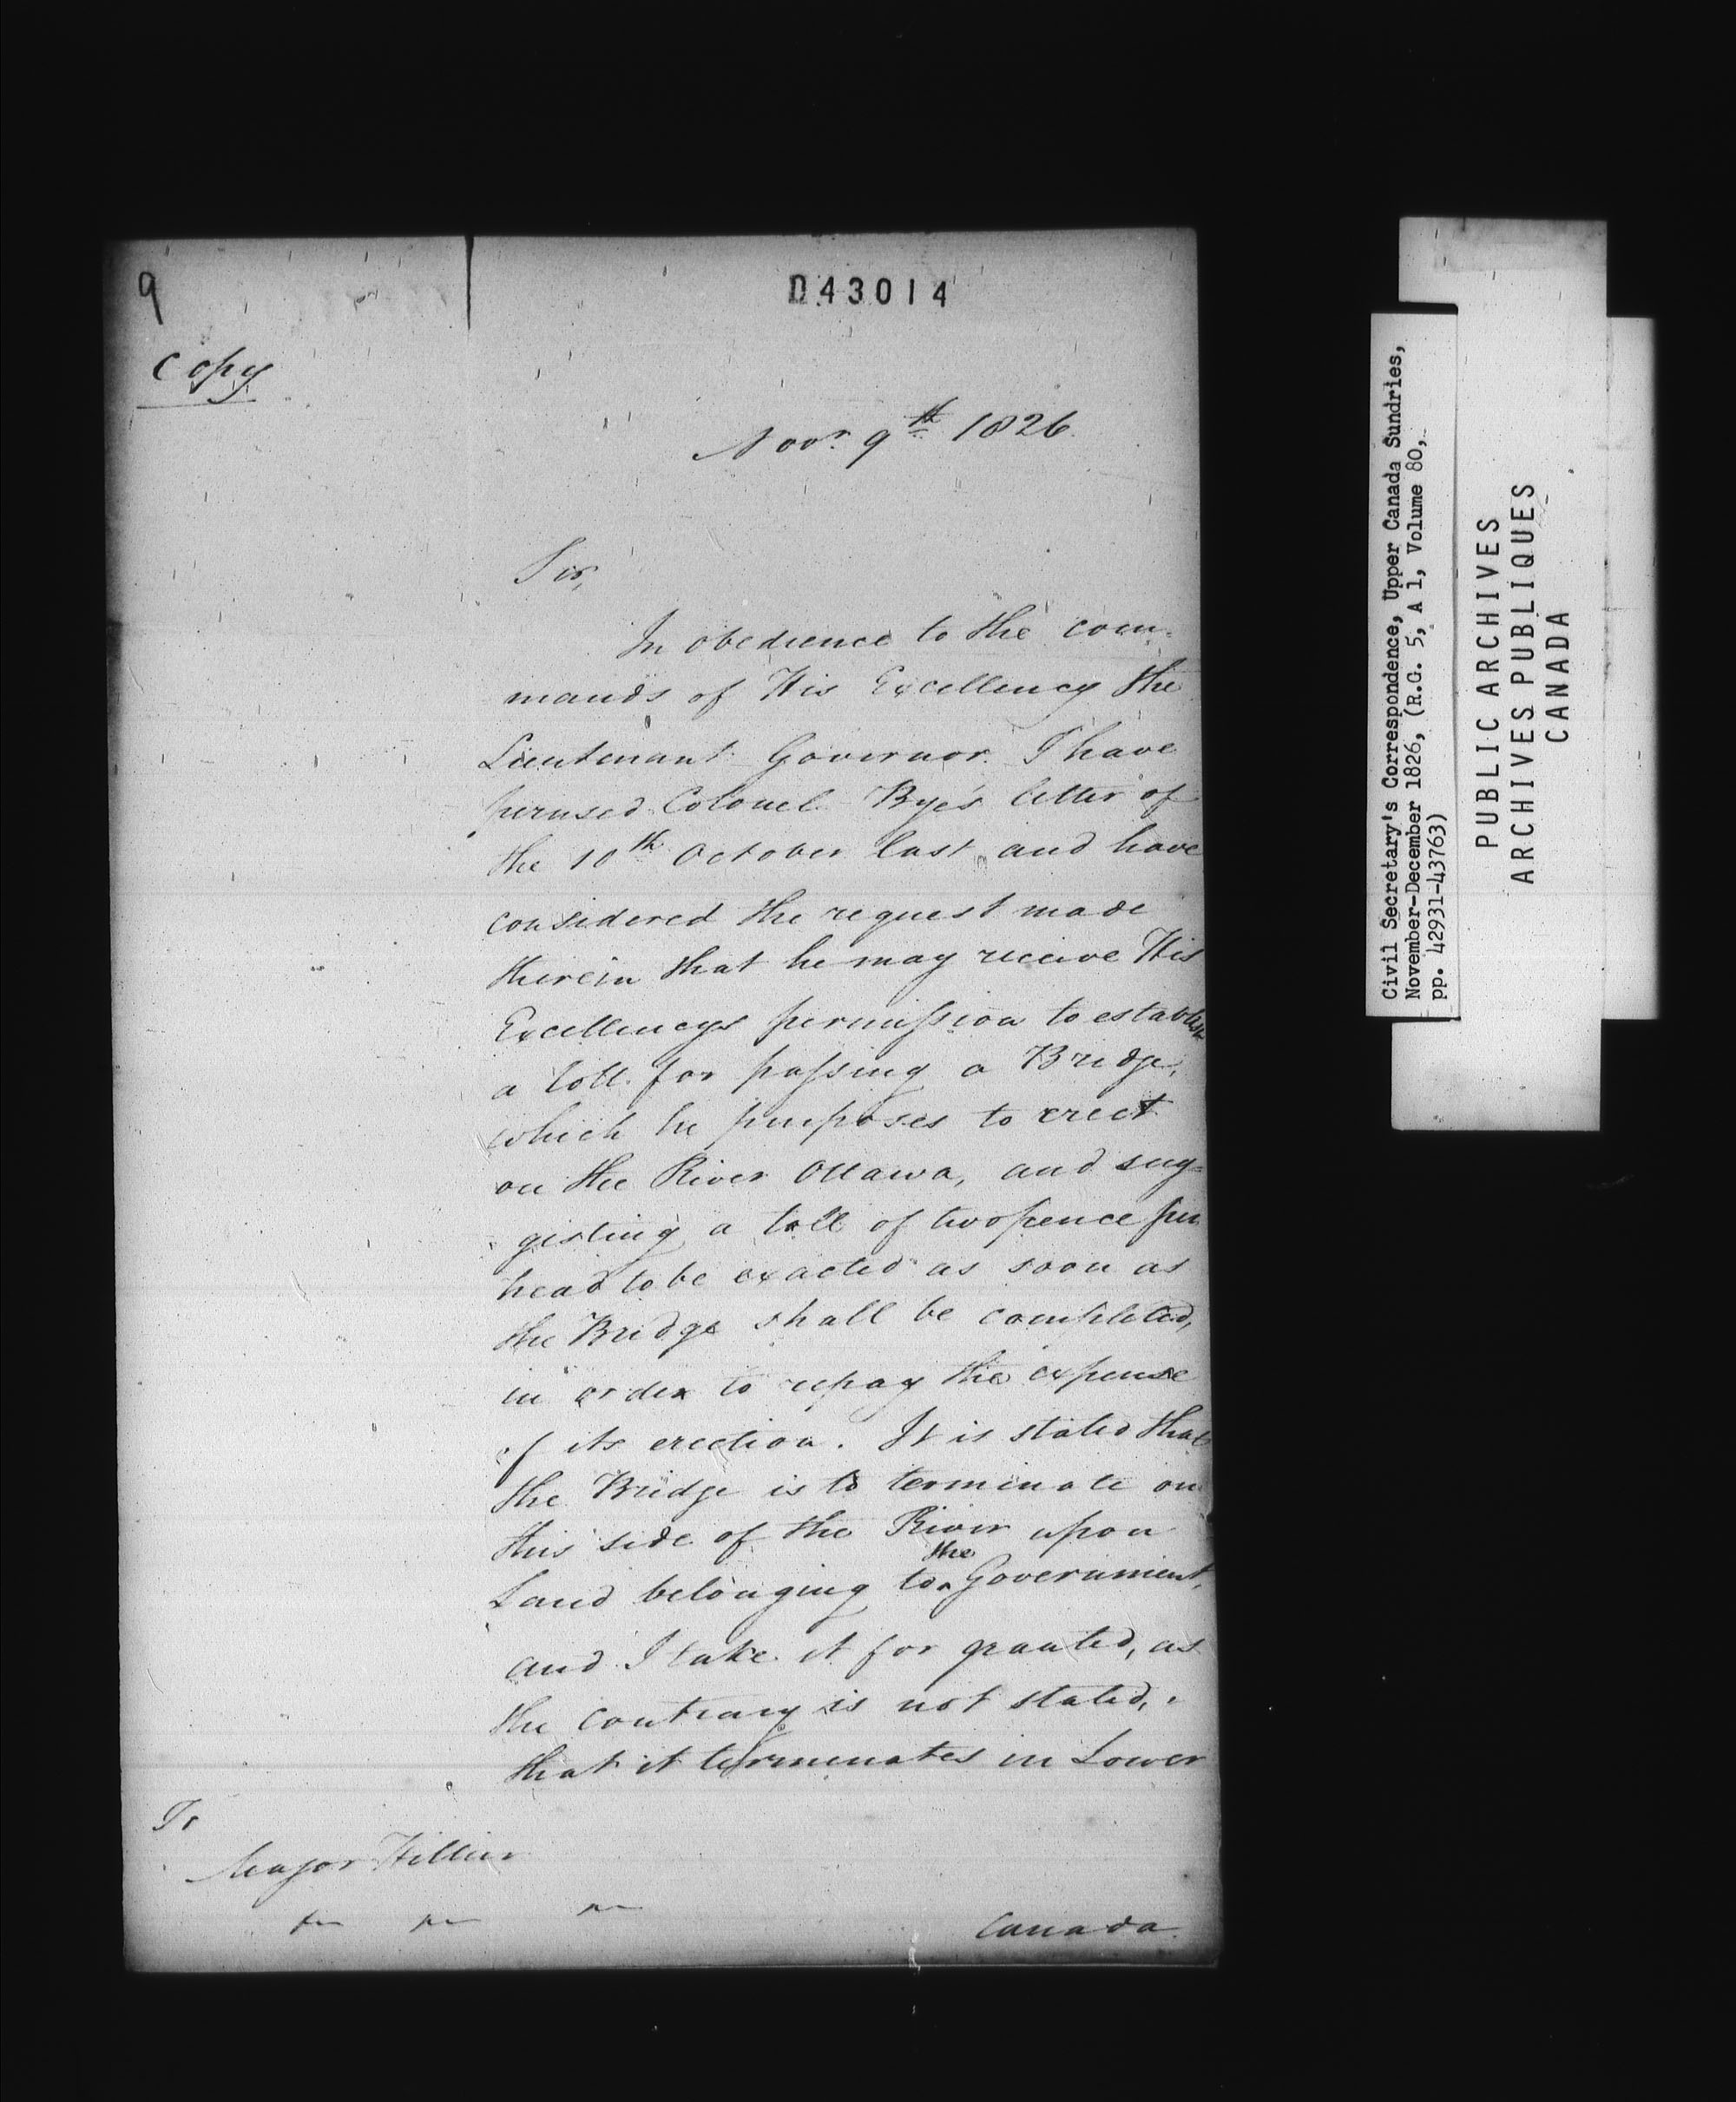 9
D43014
Copy
Novr. 9th 1826.
Sir,
In obedience to the com-
mands of His Excellency the
Lieutenant Governor. I have
perused Colonel Bye's letter of
the 10th October last, and have
considered the request made
therein that he may receive His
Excellencys permission to establish
a toll for passing a Bridge,
which he purposes to erect
on the River Ottawa, and sug=
gesting a toll of twopence per
head to be exacted as soon as
the Bridge shall be completed,
in order to repay the expense
of its erection. It is stated that
the Bridge is to terminate on
this side of the River upon
the
Land belonging to Government,
and I take it for granted, as
the contrary is not stated,
that it terminates in Lower
To
Major Hillier
Canada
Civil Secretary's Correspondence, Upper Canada Sundries,
November-December 1826, (R.G. 5, A 1, Volume 80,
pp. 42931-43763)
PUBLIC ARCHIVES
ARCHIVES PUBLIQUES
CANADA